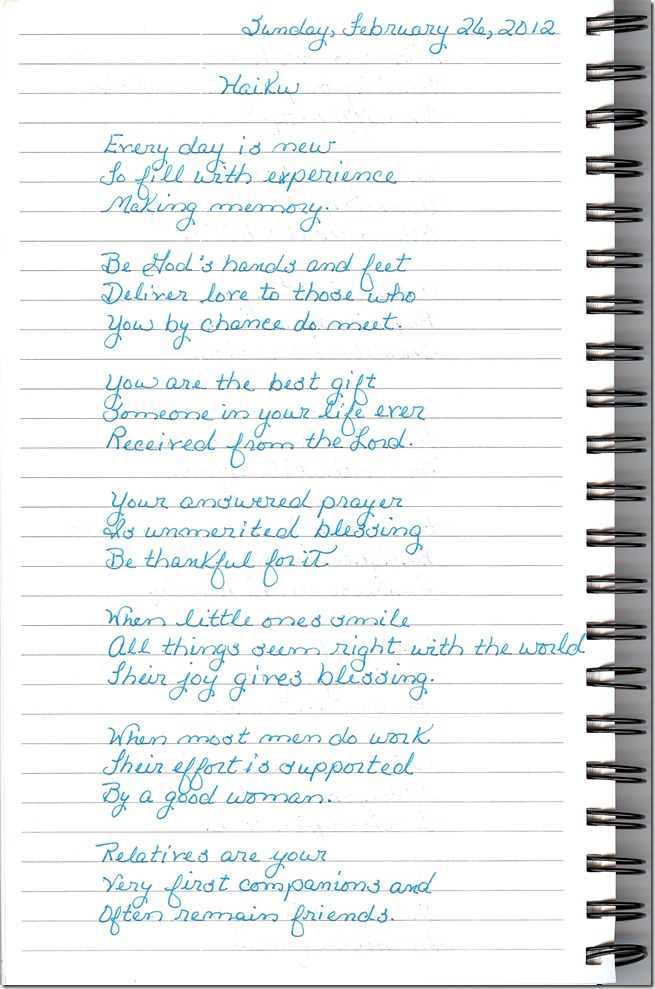 Sunday, February 26, 2012
Haiku
Every day is new
To fill with experience
Making memory.
Be God's hands and feet
Deliver love to those who
You by chance do meet.
You are the best gift
Someone in your life ever
Received from the Lord.
Your answered prayer
Is unmerited blessing
Be thankful for it
When little ones smile
All things seem right with the world
Their joy gives blessing.
When most men do work
Their effort is supported
By a good woman.
Relatives are your
Very first companions and
Often remain friends.